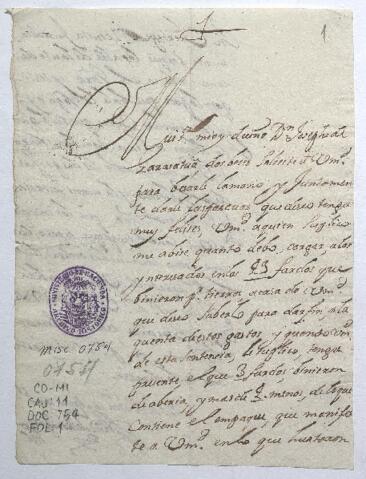 1
Muit. mio y dueño Dn Joseph de
Zarratua dos veces solicite a Vmd.
para besarle la mano y Juntamen
te darle las pascuas, que deseo tenga
muy felises, Vmd. a quien suplico
me avise quanto debo, cargar a los
Ynteresados en los 23 fardos que
binieron pr. tierra a casa de Vmd.
que deseo saberlo para dar fin a la
quenta de estos gastos y quando Vmd.
de esta sentencia, le suplico, tenga
presente, el que 3 fardos binieron
de aberia, y mas de menos, de lo que
contiene el empaque, que manifes
te a Vmd. en lo que
Misc 0754
0755
CO-MI
CAJ: 11
DOC 754
FOL 1